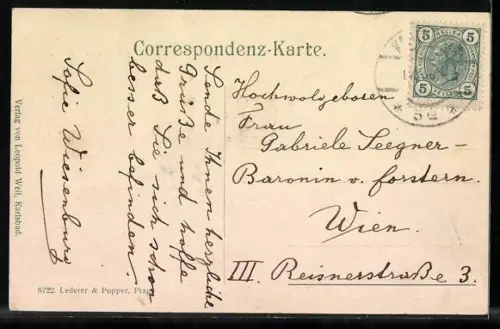 Correspondenz-Karte.
Sende Ihnen herzliche
Grüße und hoffe
daß Sie sich schon
besser befinden.
Sofie Wiesenburg
Hochwolgeboren
Frau
Gabriele Seegner-
Baronin v. Forstern.
Wien.
III. Reisnerstraße 3.
5
5
5
5
HELLER
Verlag von Leopold Weil, Karlsbad.
8722. Lederer & Popper, Prag